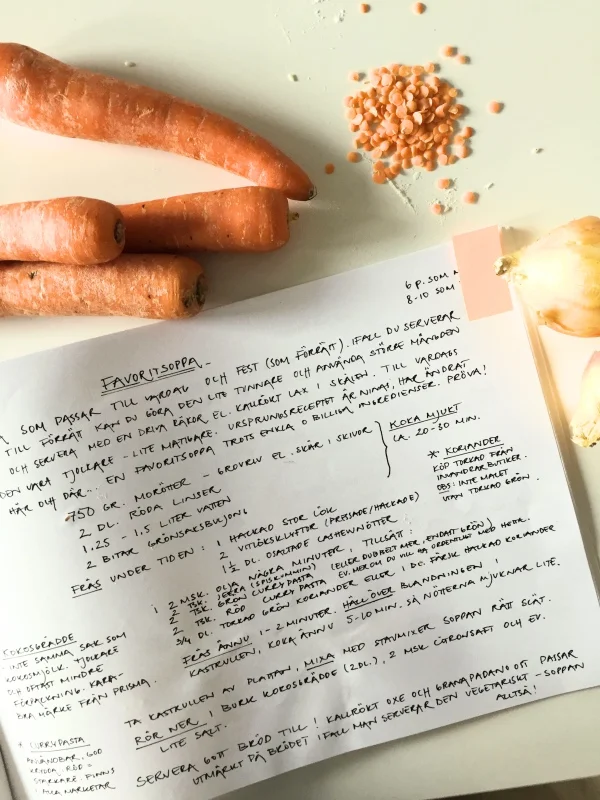 6 P. SOM
8-10 SOM
FAVORITSOPPA -
SOM PASSAR TILL VARDAG OCH FEST (SOM FÖRRÄTT). IFALL DU SERVERAR
TILL FÖRRÄTT KAN DU GÖRA DEN LITE TUNNARE OCH ANVÄNDA STÖRRE MÄNGDEN
OCH SERVERA MED EN DRIVA RÄKOR EL. KALLRÖKT LAX I SKÅLEN. TILL VARDAGS
DEN VARA TJOCKARE - LITE MATIGARE. URSPRUNGSRECEPTET ÄR NINAS, HAR ÄNDRAT
HÄR OCH DÄR... EN FAVORITSOPPA TROTS ENKLA O BILLIGA INGREDIENSER. PRÖVA!
750 GR. MORÖTTER - GROVRIV EL. SKÄR I SKIVOR
2 DL. RÖDA LINSER
1,25 - 1,5 LITER VATTEN
2 BITAR GRÖNSAKSBULJONG
KOKA MJUKT
CA. 20-30 MIN.
* KORIANDER
KÖP TORKAD FRÅN
INVANDRARBUTIKER.
OBS: INTE MALET
UTAN TORKAD GRÖN.
FRÄS UNDER TIDEN: 1 HACKAD STOR LÖK
2 VITLÖKSKLYFTOR (PRESSADE/HACKADE)
1 ½ DL. OSALTADE CASHEWNÖTTER
I 2 MSK. OLJA NÅGRA MINUTER, TILLSÄTT:
2 TSK. JEERA (SPISKUMMIN)
2 TSK. GRÖN CURRYPASTA (ELLER DUBBELT MER, ENDAST GRÖN)
2 TSK. RÖD CURRYPASTA EV. MER OM DU VILL HA ORDENTLIGT MED HETTA.
3/4 DL. TORKAD GRÖN KORIANDER ELLER 1 DL. FÄRSK HACKAD KORIANDER
FRÄS ÄNNU 1-2 MINUTER. HÄLL ÖVER BLANDNINGEN I
KASTRULLEN, KOKA ÄNNU 5-10 MIN. SÅ NÖTTERNA MJUKNAR LITE.
TA KASTRULLEN AV PLATTAN, MIXA MED STAVMIXER SOPPAN RÄTT SLÄT.
RÖR NER 1 BURK KOKOSGRÄDDE (2DL.), 2 MSK CITRONSAFT OCH EV.
LITE SALT.
SERVERA GOTT BRÖD TILL! KALLRÖKT OXE OCH GRANA PADANO OST PASSAR
UTMÄRKT PÅ BRÖDET IFALL MAN SERVERAR DEN VEGETARISKT - SOPPAN
ALLTSÅ!
KOKOSGRÄDDE
INTE SAMMA SAK SOM
KOKOSMJÖLK. TJOCKARE
OCH OFTAST MINDRE
FÖRPACKNING. KARA -
BRA MÄRKE FRÅN PRISMA.
* CURRYPASTA
ANVÄNDBAR, GOD
KRYDDA. RÖD =
STARKARE. FINNS
I ALLA MARKETAR